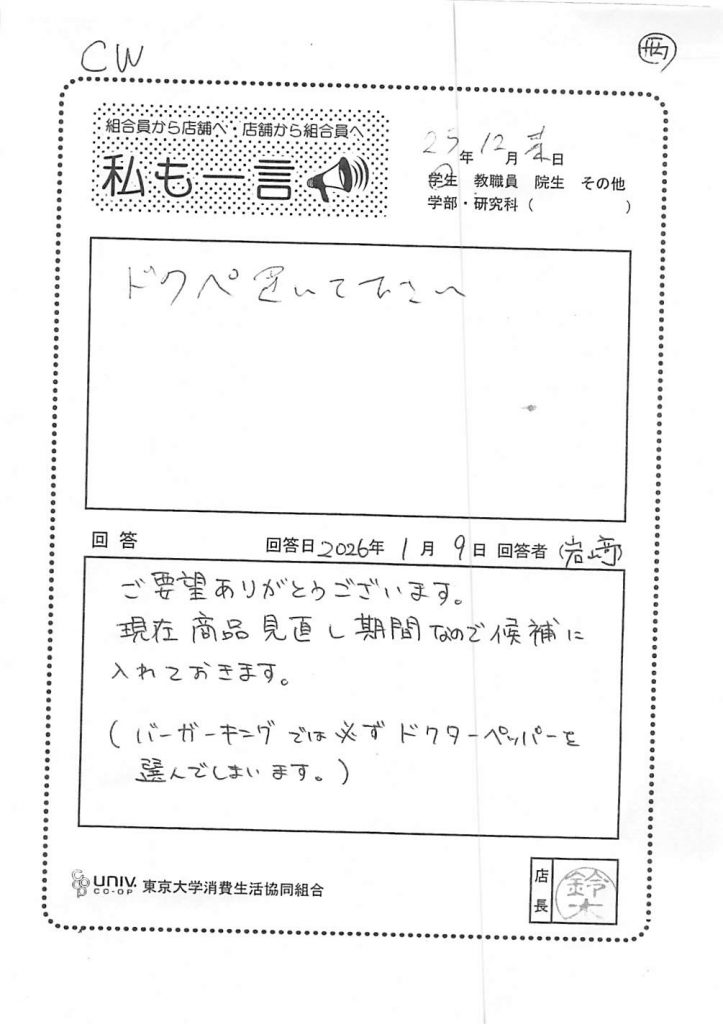 CW
組合員から店舗へ・店舗から組合員へ
私も一言
25年12月 日
学生 教職員 院生 その他
学部・研究科( )
ドクペ置いて下さい
回答 回答日2026年1月9日 回答者(岩崎)
ご要望ありがとうございます。
現在商品見直し期間なので候補に
入れておきます。
(バーガーキングでは必ずドクターペッパーを
選んでしまいます。)
UNIV.
CO-OP
東京大学消費生活協同組合
店長
鈴木